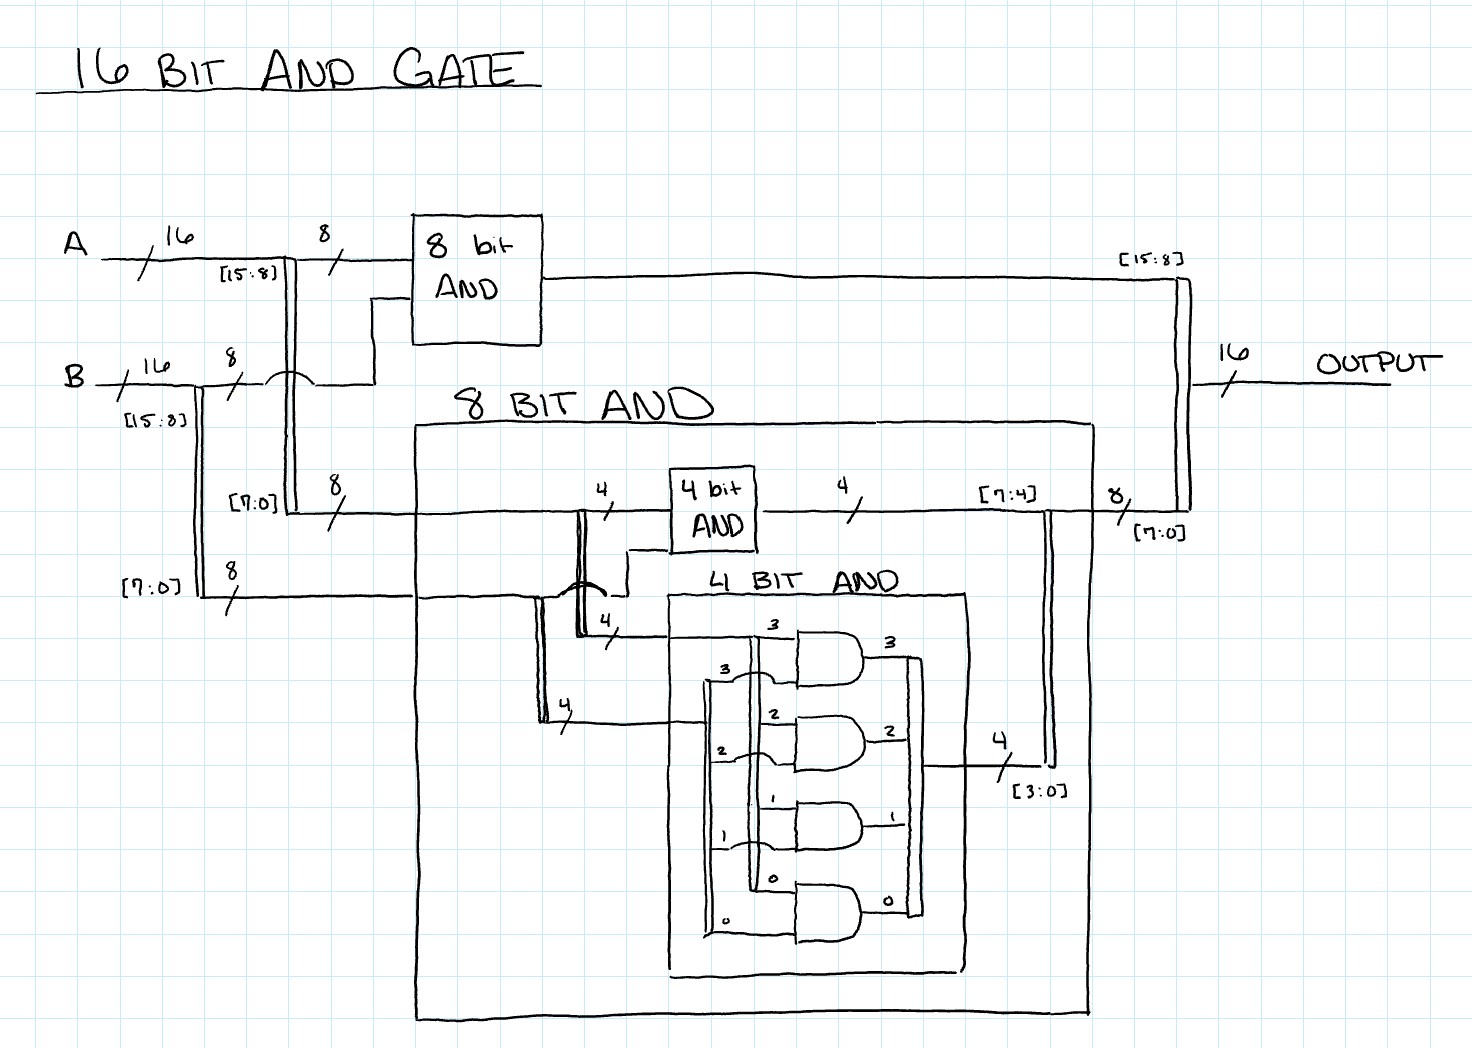 16 BIT AND GATE
A
16
[15:8]
8
8 bit
AND
[15:8]
B
16
8
[15:8]
16
OUTPUT
8 BIT AND
[7:0]
8
4
4 bit
AND
4
[7:4]
8
[7:0]
[7:0]
8
4 BIT AND
4
3
3
3
4
2
2
2
4
[3:0]
1
1
1
0
0
0